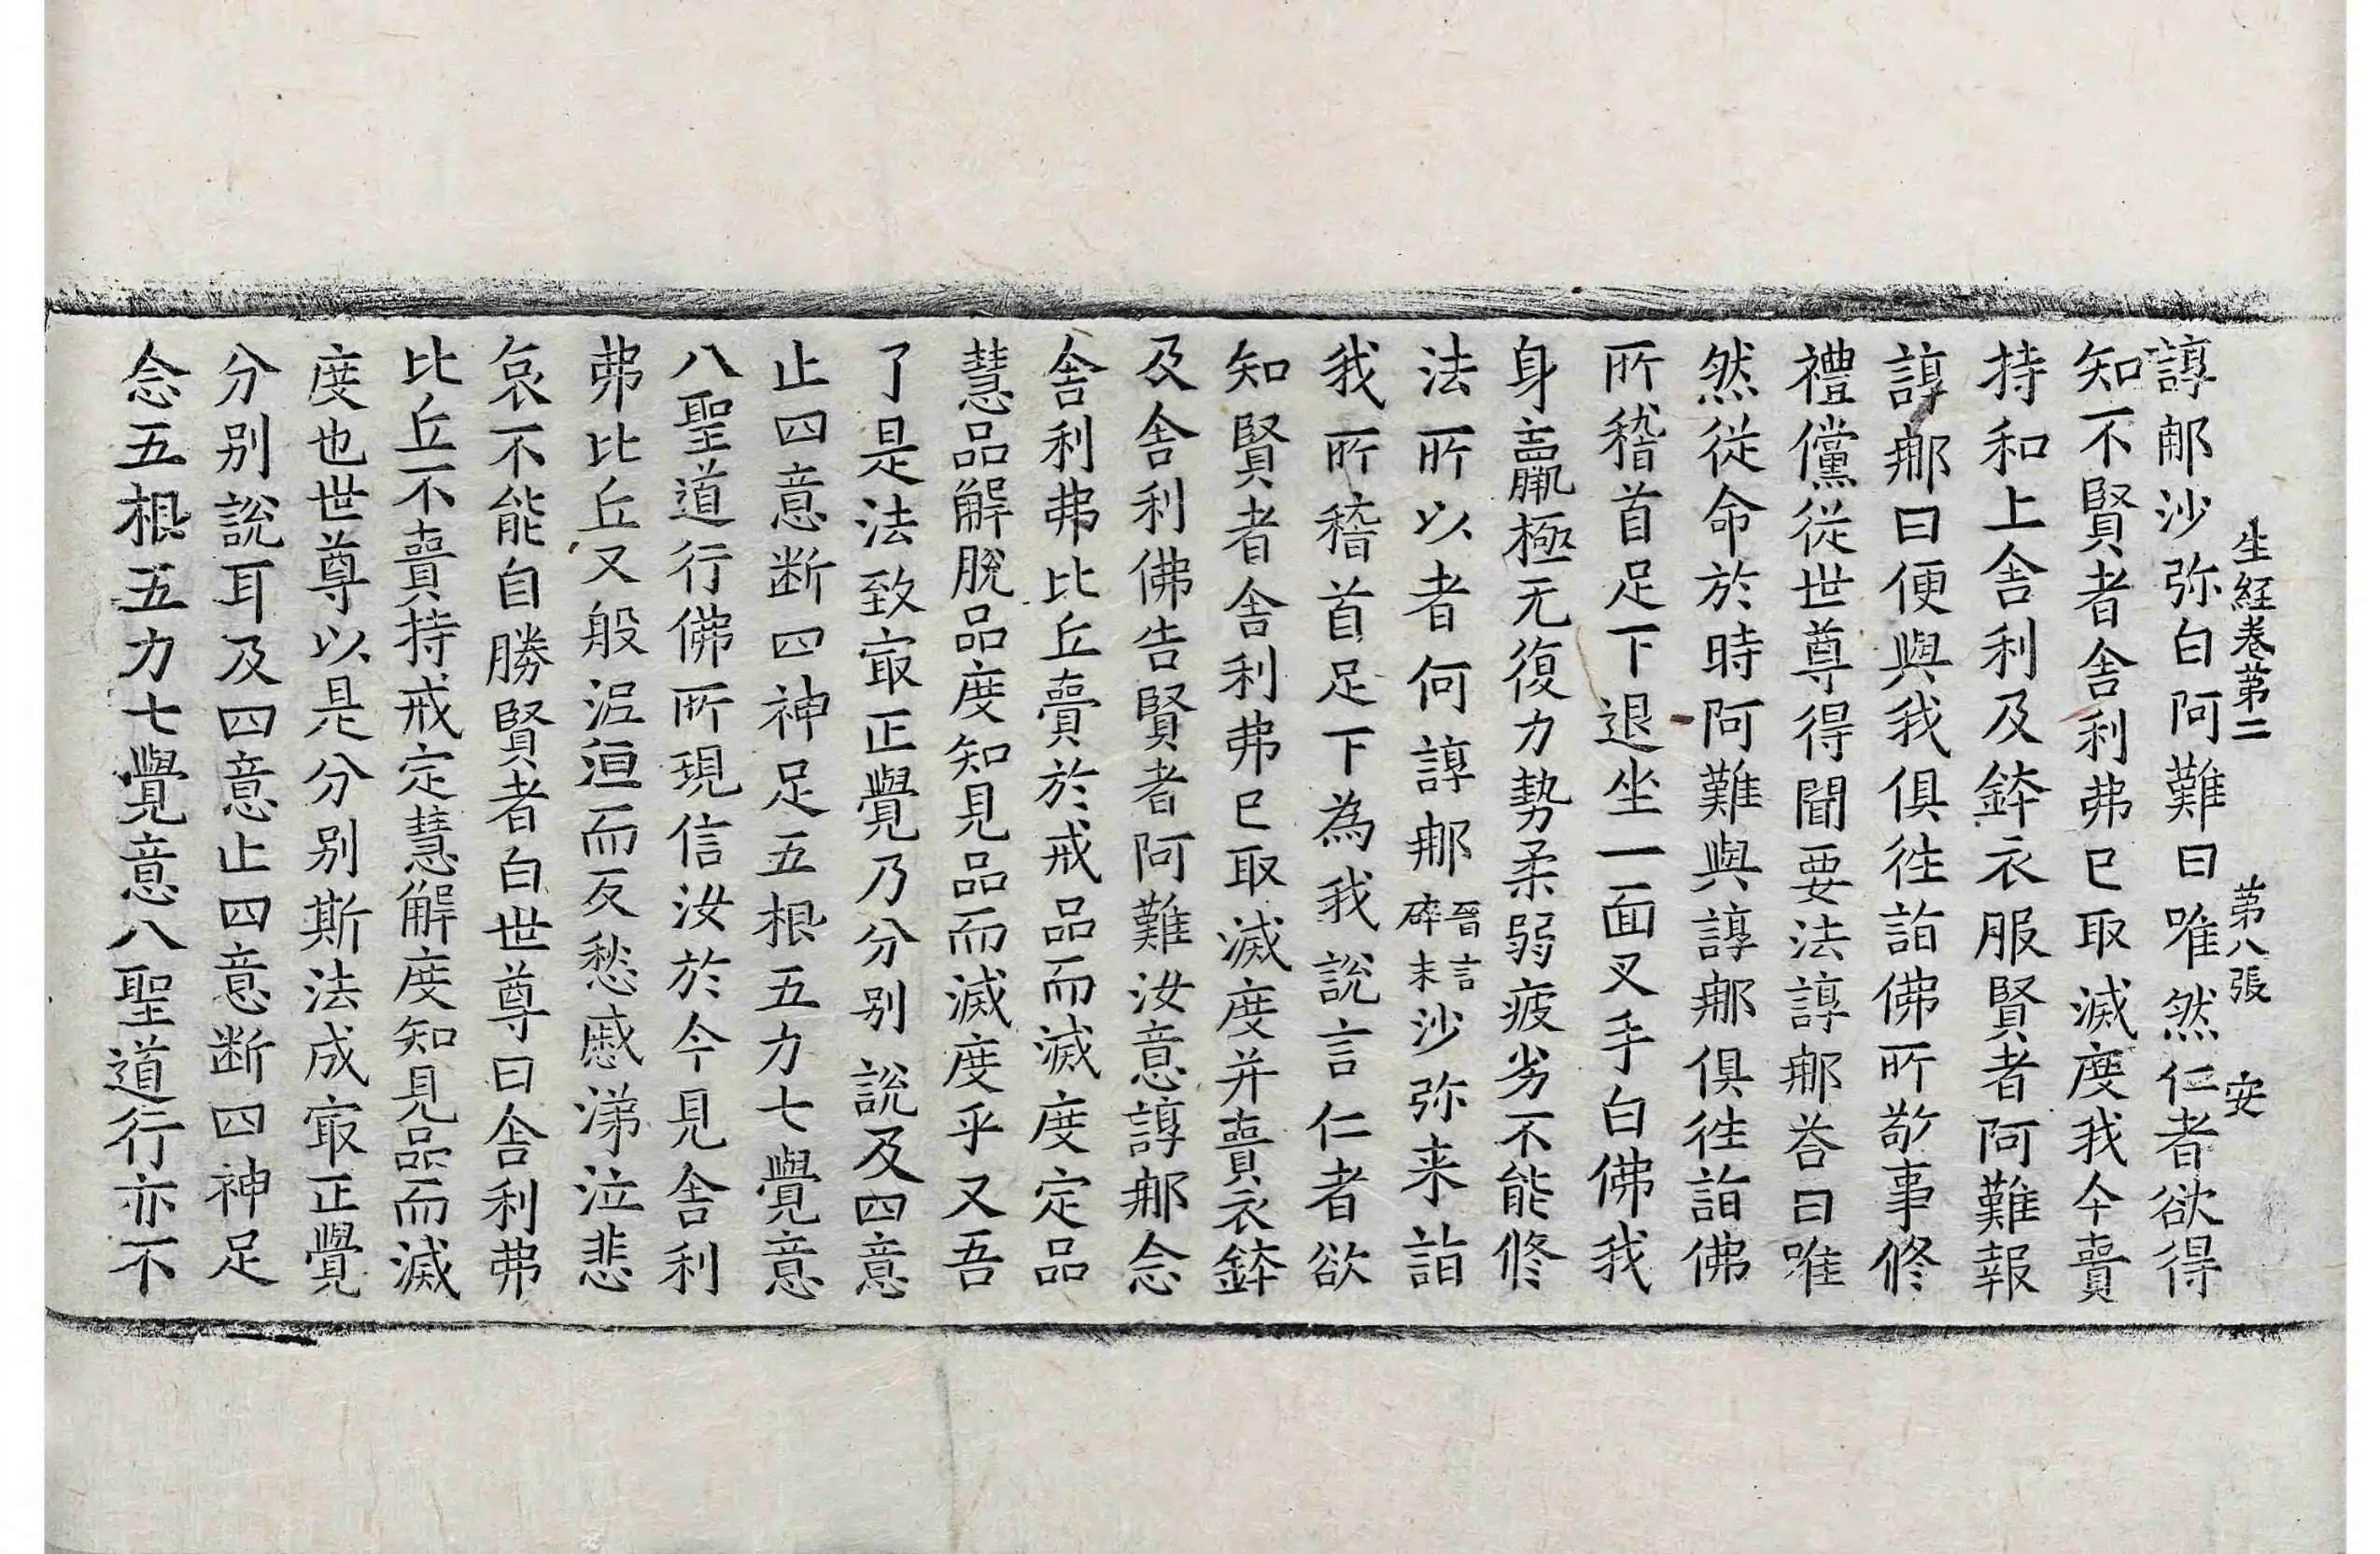 生經卷第二　第八張　安
諄那沙弥白阿難曰唯然仁者欲得
知不賢者舍利弗已取滅度我今賷
持和上舍利及鉢衣服賢者阿難報
諄那曰便與我俱徃詣佛所敬事修
禮儻從世尊得聞要法諄那荅曰唯
然從命於時阿難與諄那俱徃詣佛
所稽首足下退坐一面叉手白佛我
身羸極无復力勢柔弱疲劣不能修
法所以者何諄那晉言碎末沙弥来詣
我所稽首足下為我說言仁者欲
知賢者舍利弗已取滅度并賷衣鉢
及舍利佛告賢者阿難汝意諄那念
舍利弗比丘賷於戒品而滅度定品
慧品解脫品度知見品而滅度乎又吾
了是法致㝡正覺乃分別說及四意
止四意断四神足五根五力七覺意
八聖道行佛所現信汝於今見舍利
弗比丘又般泥洹而反愁慼涕泣悲
哀不能自勝賢者白世尊曰舍利弗
比丘不賷持戒定慧解度知見品而滅
度也世尊以是分別斯法成㝡正覺
分別說耳及四意止四意断四神足
念五根五力七覺意八聖道行亦不